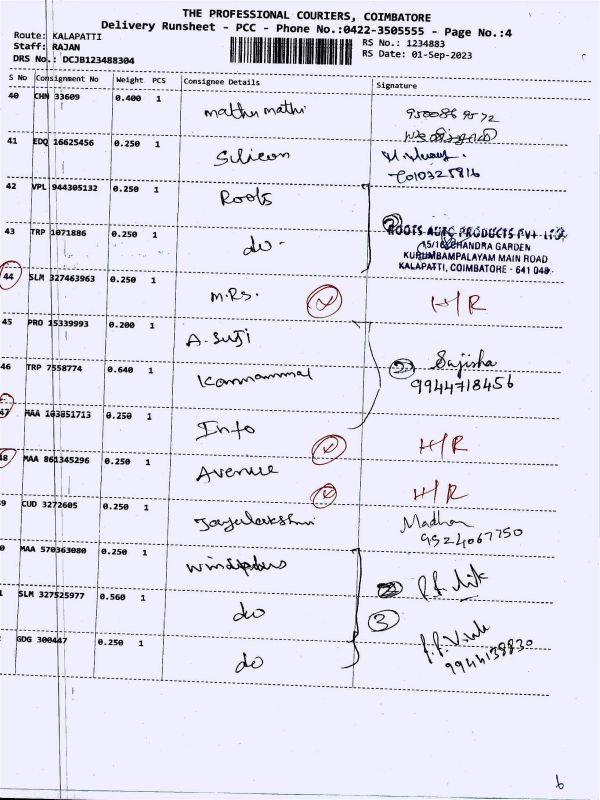 THE PROFESSIONAL COURIERS, COIMBATORE
Delivery Runsheet - PCC - Phone No.:0422-3505555 - Page No.:4
Route: KALAPATTI
RS No.: 1234883
Staff: RAJAN
RS Date: 01-Sep-2023
DRS No.: DCJB123488304
S No Consignment No Weight PCS Consignee Details Signature
40 CHN 33609 0.400 1 mathumathi 950086 9572
41 EDQ 16625456 0.250 1 Silicon
42 VPL 944305132 0.250 1 Roots
43 TRP 1071886 0.250 1 do-
2
ROOTS AUTO PRODUCTS PVT LTD.
15/16, CHANDRA GARDEN
KURUMBAMPALAYAM MAIN ROAD
KALAPATTI, COIMBATORE - 641 048.
44 SLM 327463963 0.250 1 M.Rs. X H/R
45 PRO 15339993 0.200 1 A. Suji
46 TRP 7558774 0.640 1 Kannammal 2 Sajisha
9944718456
47 MAA 103851713 0.250 1 Info X H/R
48 MAA 861345296 0.250 1 Avenue X H/R
9 CUD 3272605 0.250 1 Jayalakshmi Madhan
9524067750
0 MAA 570363080 0.250 1
1 SLM 327525977 0.560 1 do 3
GDG 300447 0.250 1 do
9944138830
6